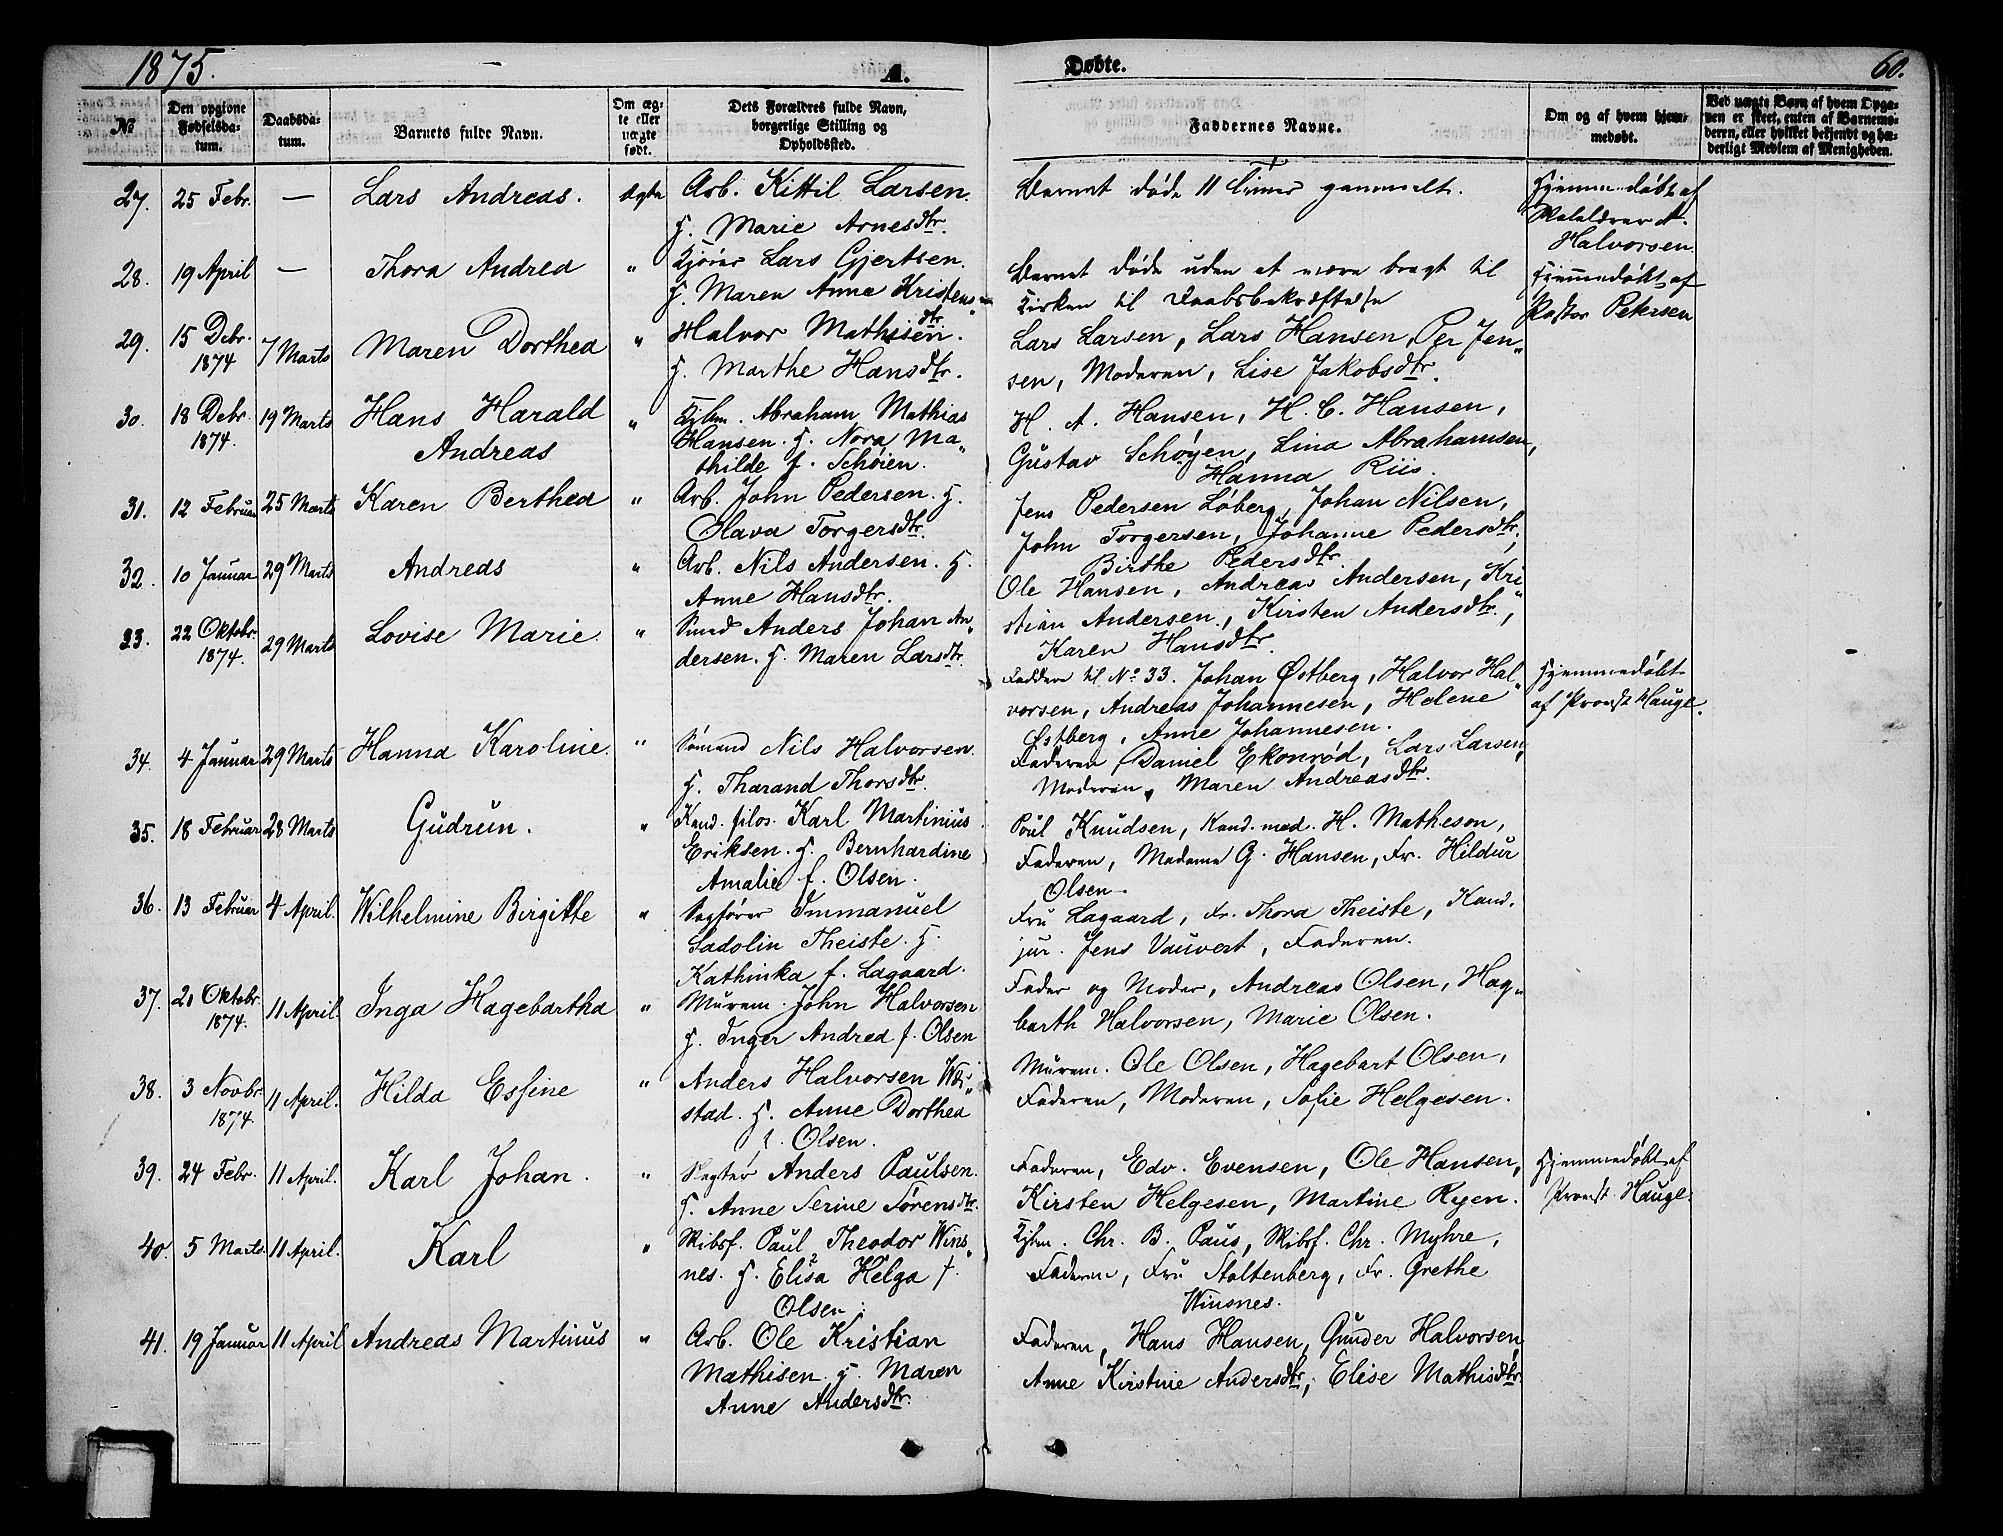 1875.
A.
Døbte.
60.
No
Den opgivne Fødselsdatum.
Daabsdatum.
Barnets fulde Navn.
Om ægte eller uægte født.
Dets Forældres fulde Navn, borgerlige Stilling og Opholdssted.
Faddernes Navne.
Om og af hvem hjemmedøbt.
Ved uægte Børn af hvem Opgaven er skeet, enten af Barnemoderen, eller hvilket bekjendt og hæderligt Medlem af Menigheden.
27. 25 Febr. — Lars Andreas. ægte Arb. Kittil Larsen. Barnet døde 11 Timer gammelt. Hjemmedøbt af
H. Marie Arnesdtr.
Halvorsen.
28. 19 April — Thora Andrea " Lars Gjertsen. Barnet døde uden at være bragt til Hjemmedøbt af
H. Maren Anne Kristensdtr. Kirken til Daabsbekræftelse Pastor Petersen
29. 15 Debr. 1874 7 Marts Maren Dorthea " Halvor Mathisen. Lars Larsen, Lars Hansen, Per Jen-
H. Marthe Hansdtr. sen, Moderen, Lise Jakobsdtr.
30. 18 Debr. 1874. 19 Marts Hans Harald " Kjbm. Abraham Mathias H. A. Hansen, H. C. Hansen,
Andreas Hansen. H. Nora Ma- Gustav Schøyen, Lina Abrahamsen,
thilde f. Schøien. Hanna Riis.
31. 12 Februar 25 Marts Karen Berthea " Arb. John Pedersen. H. Jens Pedersen Løberg, Johan Nilsen,
Olava Torgersdtr. John Torgersen, Johanne Pedersdtr.,
Birthe Pedersdtr.
32. 10 Januar 29 Marts Andreas " Arb. Nils Andersen. H. Ole Hansen, Andreas Andersen, Kri-
Anne Hansdtr. stian Andersen, Kirsten Andersdtr.,
Karen Hansdtr.
33. 22 Oktobr. 1874. 29 Marts Lovise Marie " Smed Anders Johan An-
dersen. H. Maren Larsdtr. Faddere til No 33. Johan Østberg, Halvor Hal- Hjemmedøbt
vorsen, Andreas Johannesen, Helene af Provst Hauge.
Østberg, Anne Johannesen.
34. 4 Januar 29 Marts Hanna Karoline. " Sømand Nils Halvorsen Faderen, Daniel Ekonrød, Lars Larsen,
H. Tharand Thorsdtr. Moderen, Maren Andreasdtr.
35. 18 Februar 28 Marts Gudrun. " Kand. filos. Karl Martinius Poul Knudsen, Kand. med. H. Matheson,
Eriksen. H. Bernhardine Faderen, Madame G. Hansen, Fr. Hildur
Amalie f. Olsen. Olsen.
36. 13 Februar 4 April. Wilhelmine Birgitte " Sagfører Immanuel Fru Lagaard, Fr. Thora Theiste, Kand.
Sadolin Theiste. H. jur. Jens Vauvert, Faderen.
Kathinka f. Lagaard.
37. 21 Oktobr. 1874. 11 April. Inga Hagebartha " Murem. John Halvorsen Fader og Moder, Andreas Olsen, Hag-
H. Inger Andrea f. Olsen barth Halvorsen, Marie Olsen.
38. 3 Novbr. 1874. 11 April. Hilda Essine " Anders Halvorsen Murem. Ole Olsen, Hagebart Olsen,
stad. H. Anne Dorthea Faderen, Moderen, Sofie Helgesen.
f. Olsen.
39. 24 Febr. 11 April. Karl Johan. " Slagter Anders Paulsen. Faderen, Edv. Evensen, Ole Hansen, Hjemmedøbt af
H. Anne Serine Sørensdtr. Kirsten Helgesen, Martine Ryen. Provst Hauge.
40. 5 Marts. 11 April. Karl " Skibsf. Paul Theodor Wins- Kjbm. Chr. B. Paus, Skibsf. Chr. Myhre,
nes. H. Elisa Helga f. Faderen, Fru Stoltenberg, Fr. Grethe
Olsen. Winsnes.
41. 19 Januar 11 April Andreas Martinus " Arb. Ole Kristian Faderen, Hans Hansen, Gunder Halvorsen,
Mathisen. H. Maren Anne Kirstine Andersdtr., Elise Mathisdtr.
Anne Andersdtr.